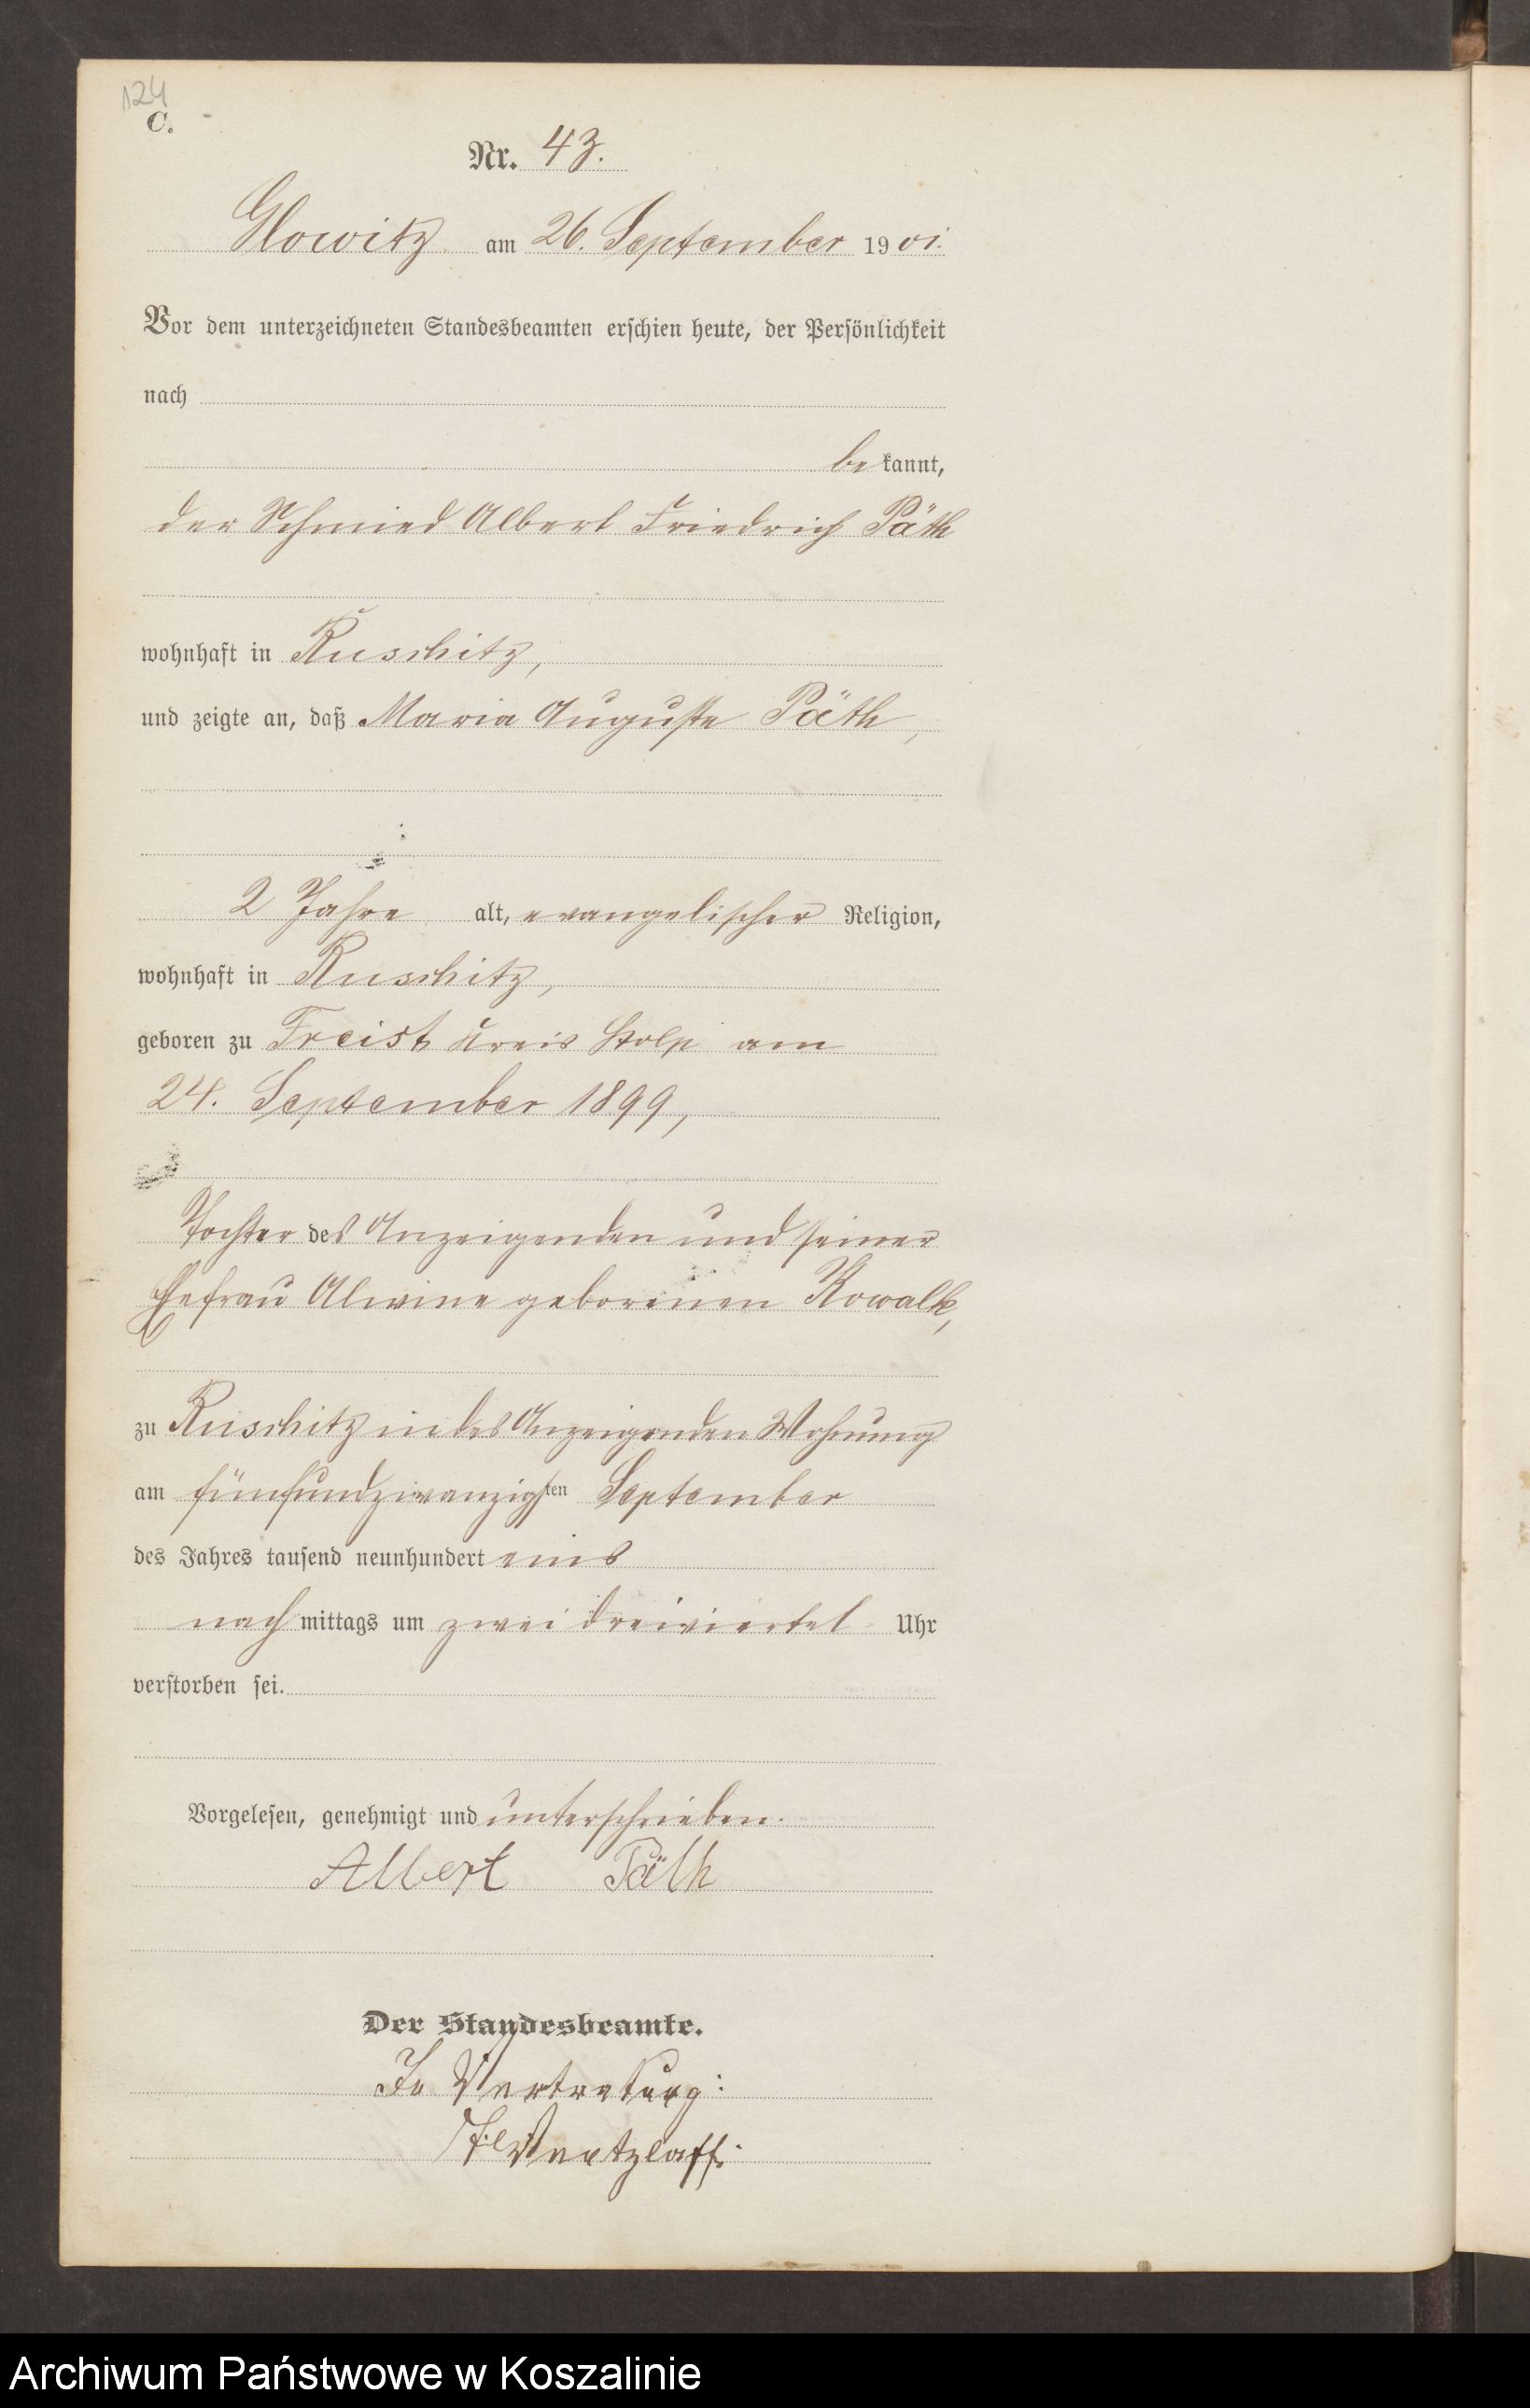 124
C.
Nr. 43.
Glowitz am 26. September 1901.
Vor dem unterzeichneten Standesbeamten erschien heute, der Persönlichkeit
nach
bekannt,
der Schmied Albert Friedrich Päth
wohnhaft in Ruschitz,
und zeigte an, daß Maria Auguste Päth,
2 Jahre alt, evangelischer Religion,
wohnhaft in Ruschitz,
geboren zu Freist Kreis Stolp am
24. September 1899,
Tochter des Anzeigenden und seiner
Ehefrau Alwine geborenen Kowalk,
zu Ruschitz in des Anzeigenden Wohnung
am fünfundzwanzigsten September
des Jahres tausend neunhundert eins
nachmittags um zwei dreiviertel Uhr
verstorben sei.
Vorgelesen, genehmigt und unterschrieben.
Albert Päth
Der Standesbeamte.
In Vertretung:
Wentzlaff.
Archiwum Państwowe w Koszalinie